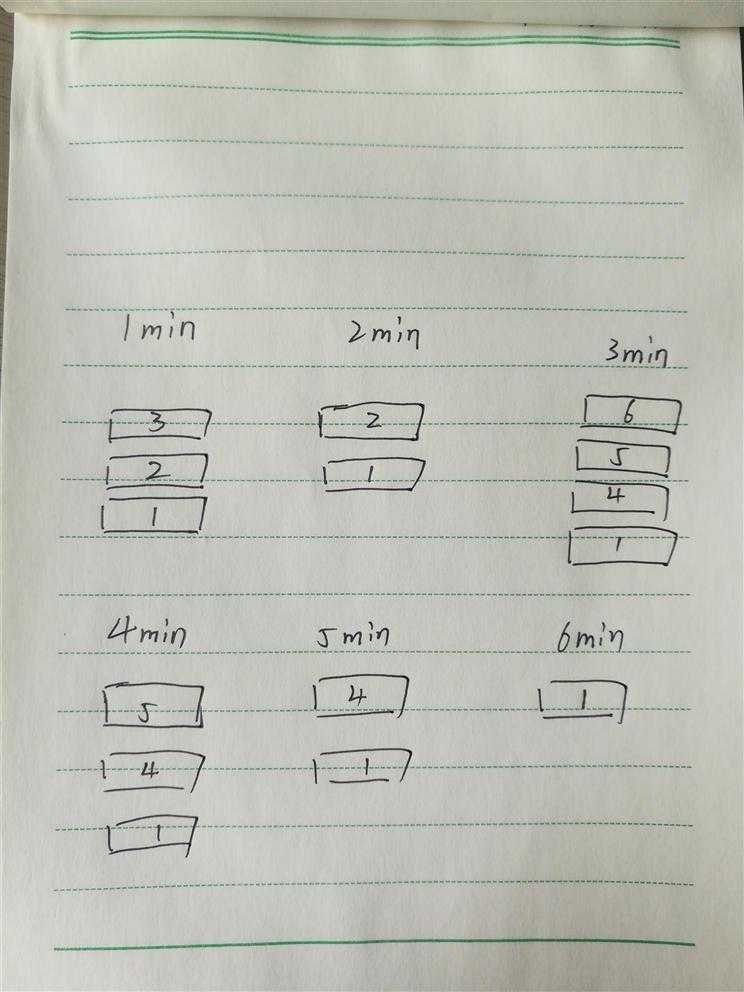 1min 2min 3min
3 2 6
2 1 5
1 4
1
4min 5min 6min
5 4 1
4 1
1